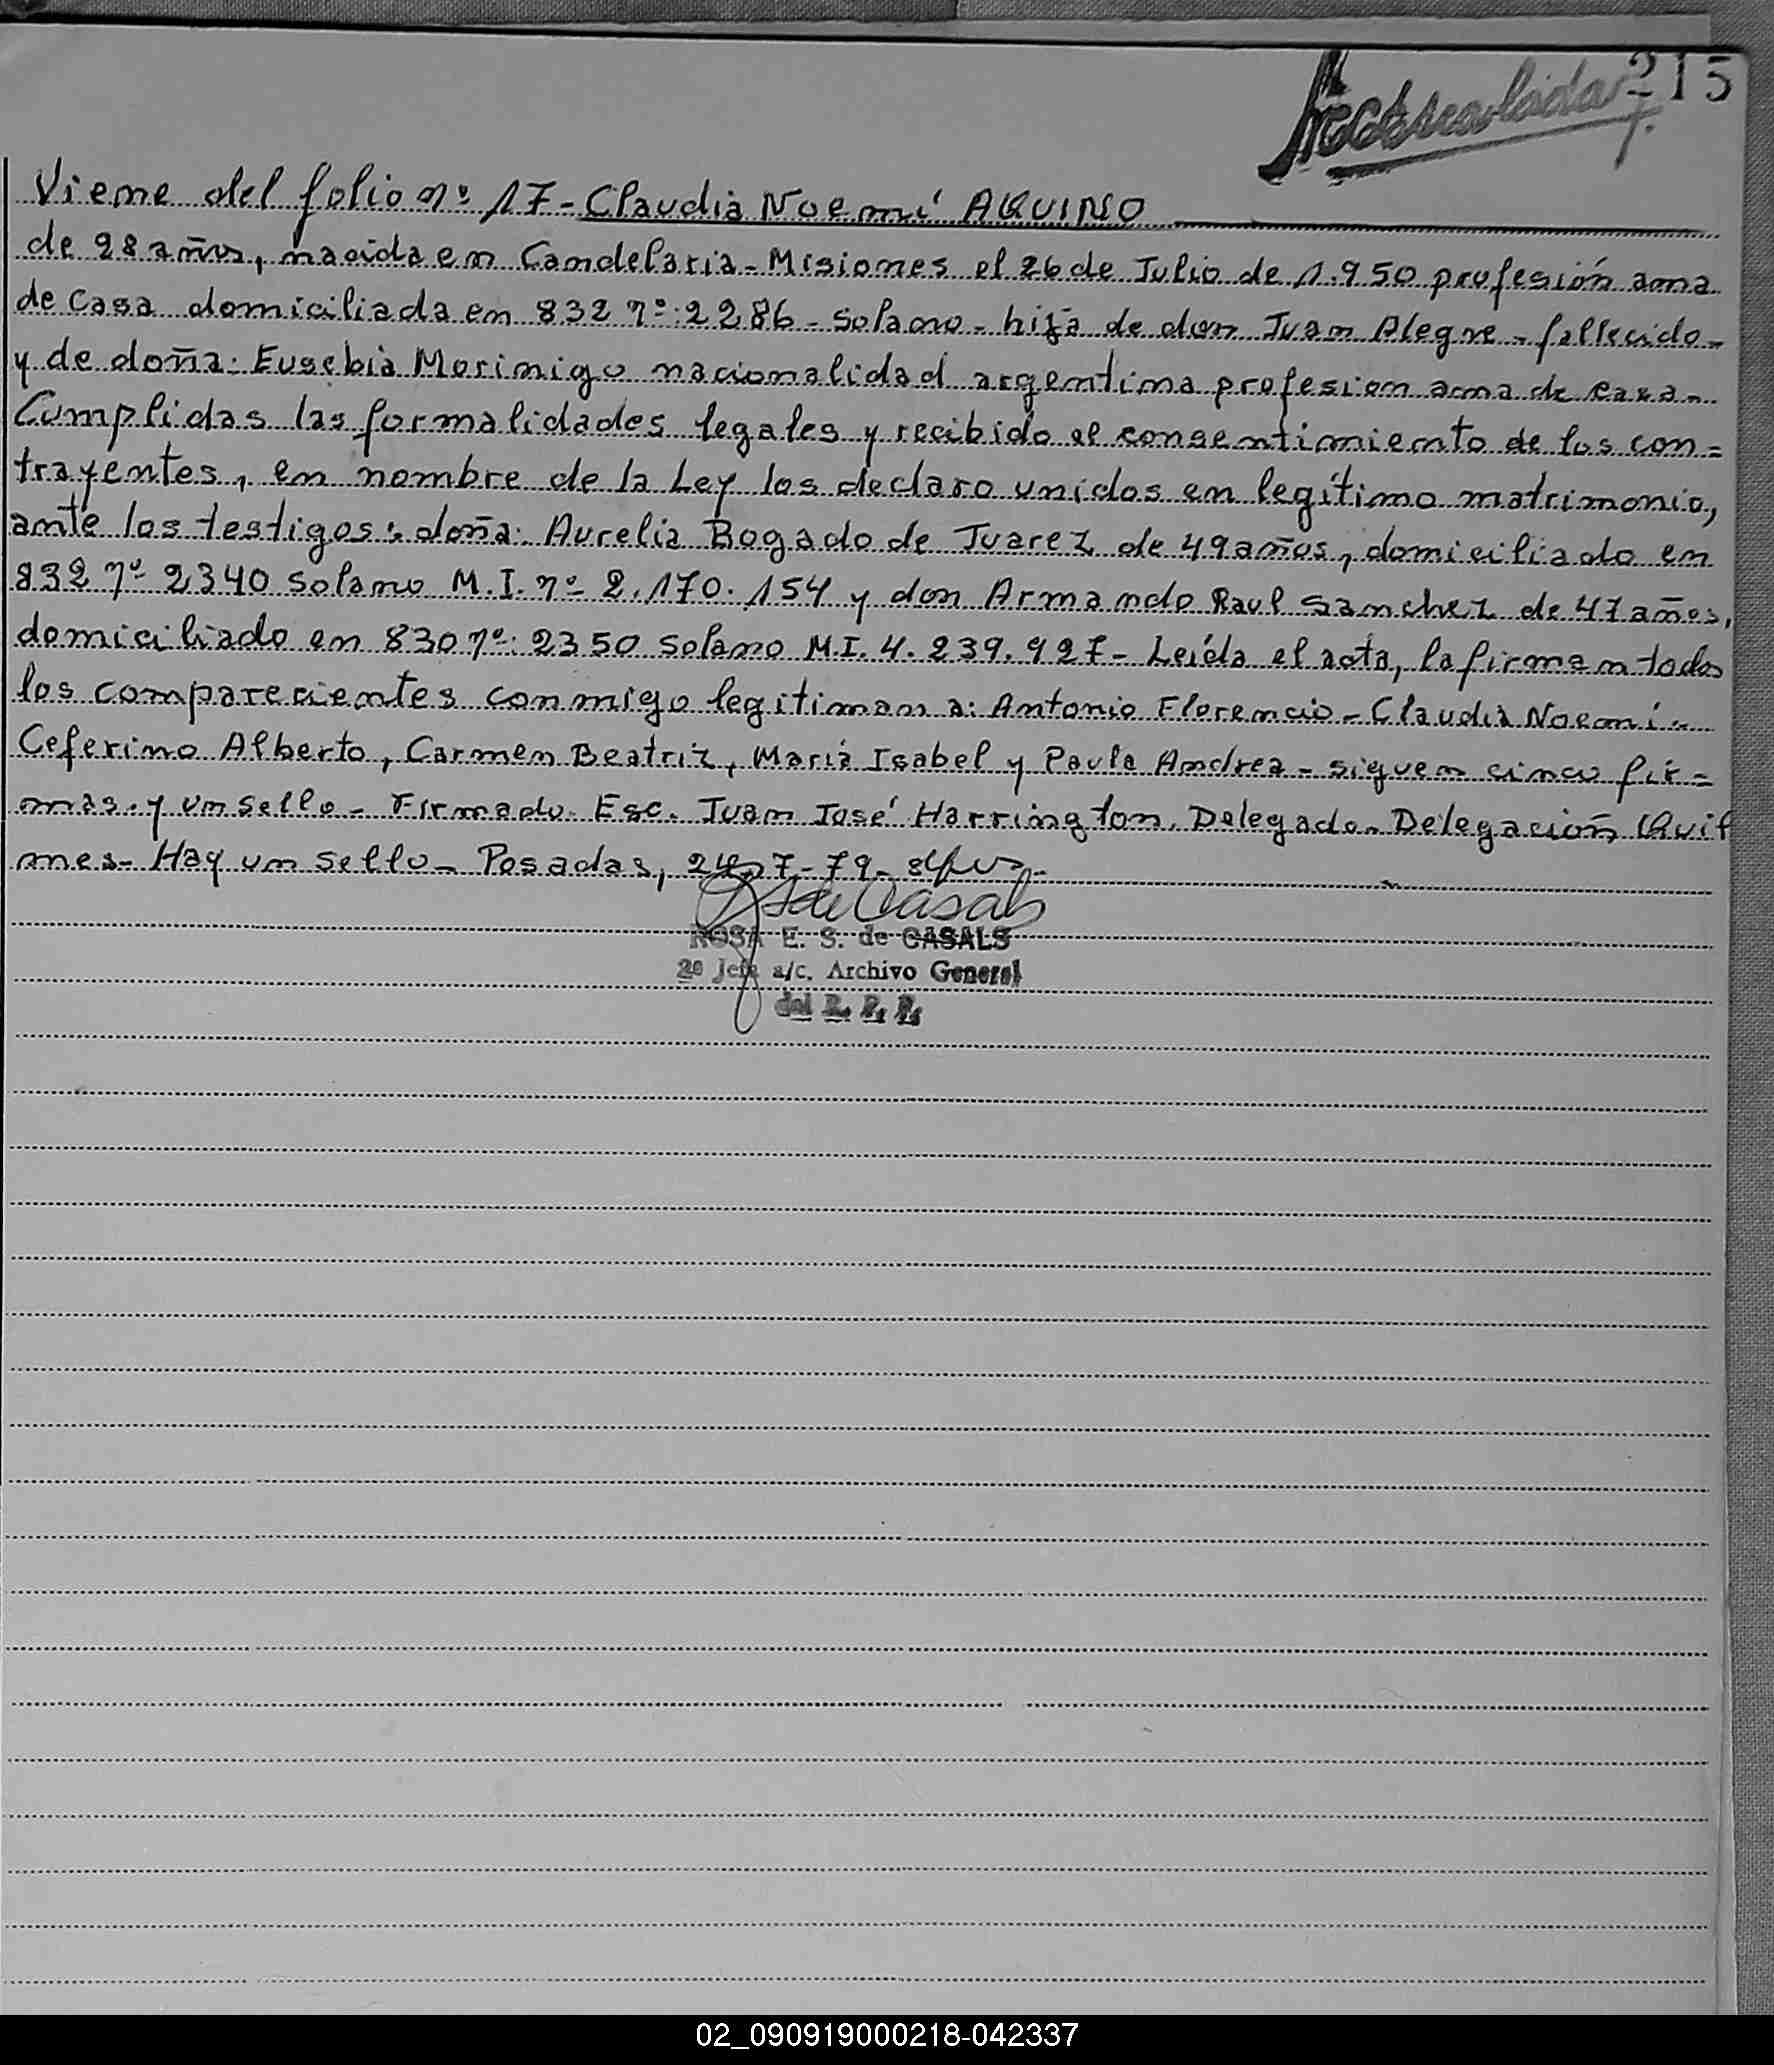 215
Viene del folio nº 17- Claudia Noemí AQUINO
de 28 años, nacida en Candelaria - Misiones el 26 de Julio de 1.950 profesión ama
de casa domiciliada en 832 nº: 2286 - Solano - hija de don Juan Alegre - fallecido -
y de doña: Eusebia Morinigo nacionalidad argentina profesion ama de casa -
Cumplidas las formalidades legales y recibido el consentimiento de los con=
trayentes, en nombre de la Ley los declaro unidos en legítimo matrimonio,
ante los testigos: doña: Aurelia Bogado de Juarez de 49 años, domiciliado en
832 nº 2340 Solano M.I. nº 2.170.154 y don Armando Raul Sanchez de 47 años,
domiciliado en 830 nº: 2350 Solano M.I. 4.239.927 - Leída el acta, la firman todos
los comparecientes conmigo legitiman a: Antonio Florencio - Claudia Noemí -
Ceferino Alberto, Carmen Beatriz, María Isabel y Paula Andrea - siguen cinco fir=
mas y un sello - Firmado. Esc. Juan José Harrington. Delegado. Delegación Quil
mes - Hay un sello - Posadas, 24-7-79-
ROSA E. S. de CASALS
2º Jefa a/c. Archivo General
del R. P. P.
02_090919000218-042337